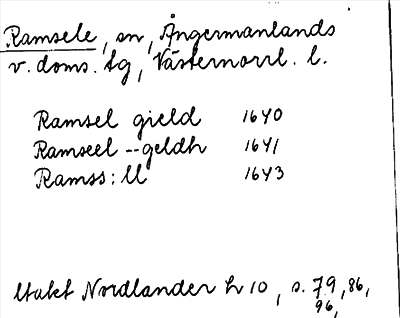 Ramsele, sn, Ångermanlands
v. doms. tg, Västernorrl. l.
Ramsel gield 1640
Ramseel --geldh 1641
Ramss: ll 1643
Utakt Nordlander h 10, s. 79, 86,
96,